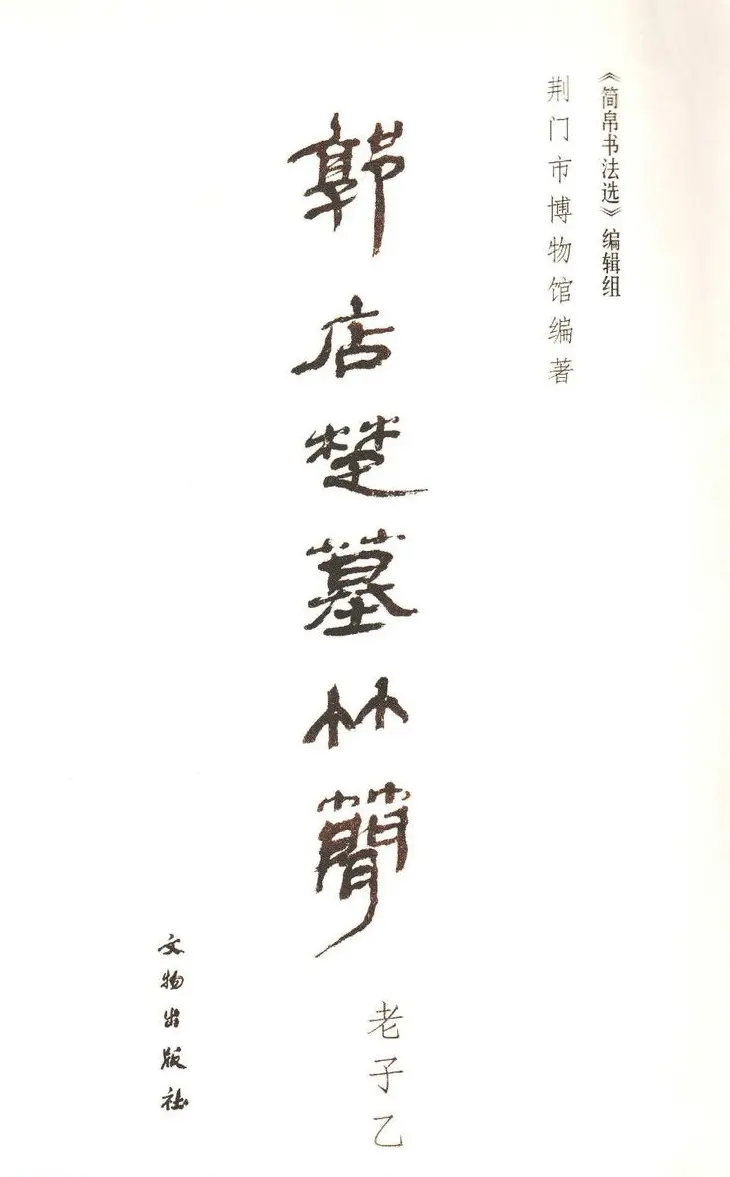 《简帛书法选》编辑组
荆门市博物馆编著
郭店楚墓竹簡
老子乙
文物出版社